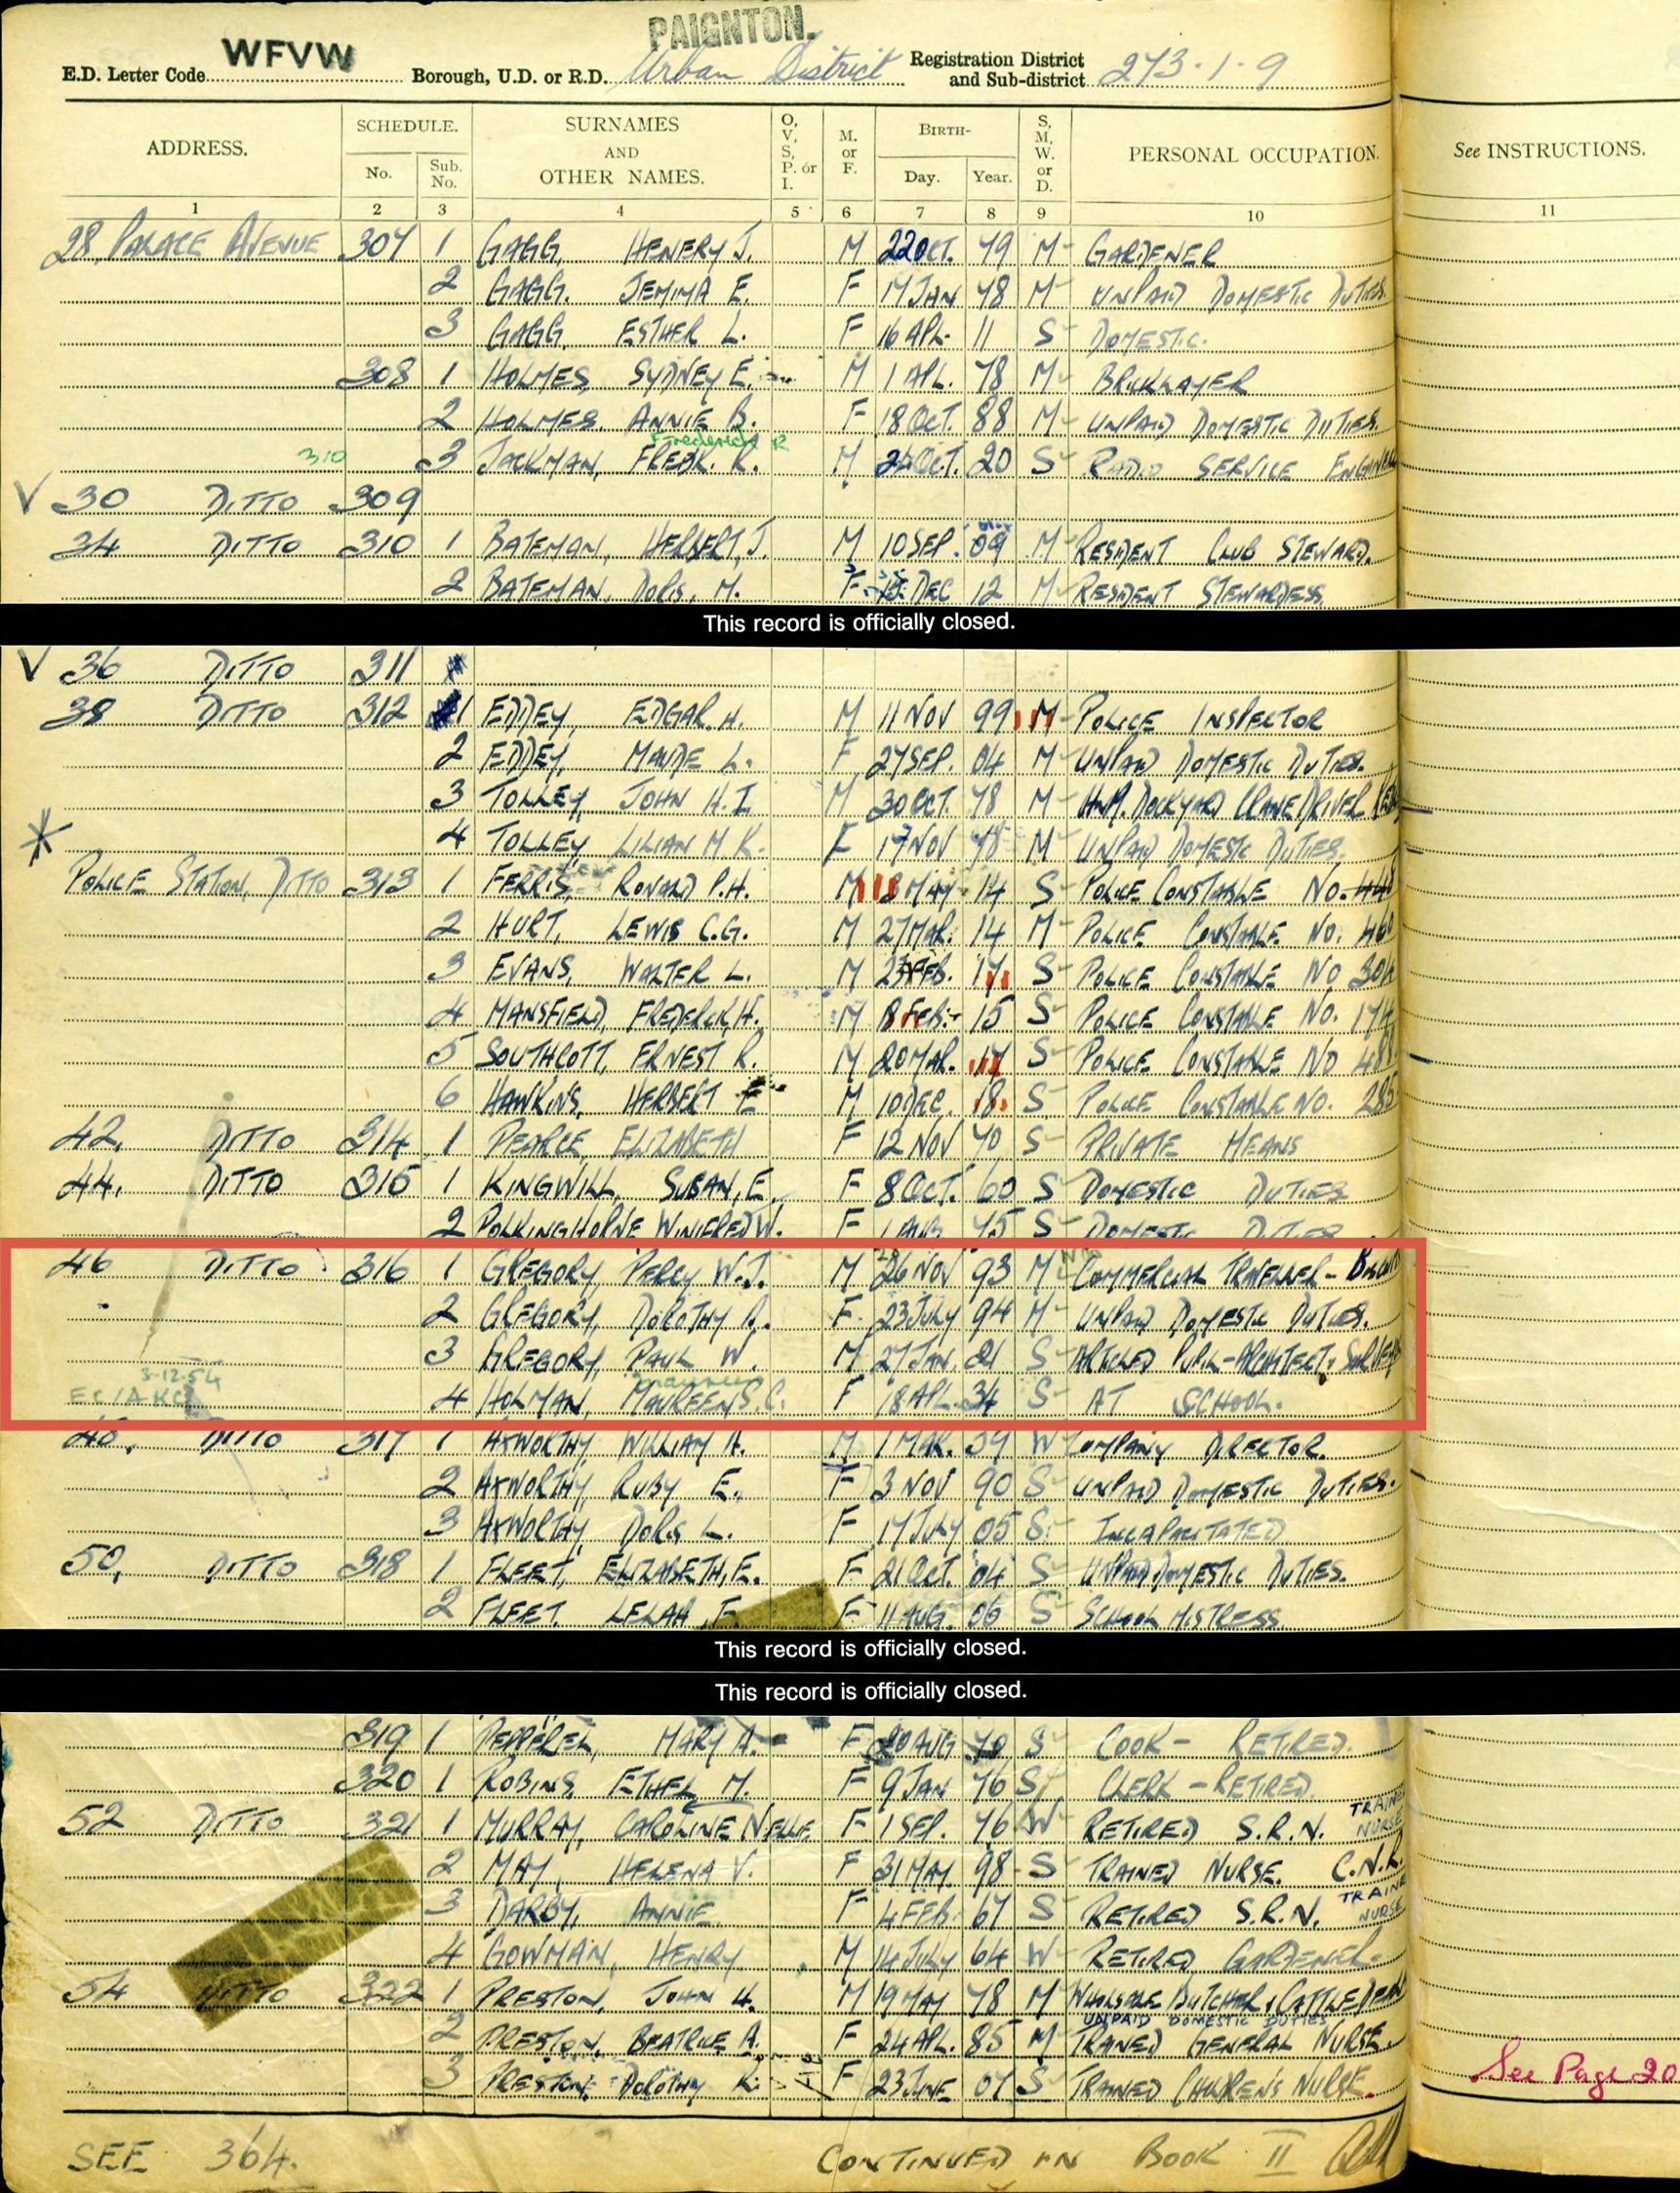 PAIGNTON.
E.D. Letter Code WFVW Borough, U.D. or R.D. Urban District Registration District and Sub-district 273-1-9
ADDRESS. SCHEDULE. No. Sub. No. SURNAMES AND OTHER NAMES. O, V, S, P. or I. M. or F. BIRTH- Day. Year. S, M, W. or D. PERSONAL OCCUPATION. See INSTRUCTIONS.
1 2 3 4 5 6 7 8 9 10 11
28, PALACE AVENUE 307 1 GAGG, HENERY J. M 22 OCT. 79 M GARDENER
2 GAGG. JEMIMA E. F 17 JAN 78 M UNPAID DOMESTIC DUTIES.
3 GAGG. ESTHER L. F 16 APL. 11 S DOMESTIC.
308 1 HOLMES, SYDNEY E. M 1 APL. 78 M BRICKLAYER
2 HOLMES. ANNIE B. F 18 OCT. 88 M UNPAID DOMESTIC DUTIES.
Frederick R
310 3 JACKMAN, FREDK. R. M OCT. 20 S RADIO SERVICE
V 30 DITTO 309
34 DITTO 310 1 BATEMAN, HERBERT J. M 10 SEP. 09 M RESIDENT CLUB STEWARD.
2 BATEMAN, DORIS, M. F DEC 12 M RESIDENT STEWARDESS.
This record is officially closed.
V 36 DITTO 311
38 DITTO 312 1 EDDEY, EDGAR. H. M 11 NOV 99 M POLICE INSPECTOR
2 EDDEY, MAUDE L. F 27 SEP. 04 M UNPAID DOMESTIC DUTIES.
3 TOLLEY, JOHN H. I. M 30 OCT. 78 M H.M. DOCKYARD CRANE DRIVER
* 4 TOLLEY, LILIAN M. K. F 17 NOV 78 M UNPAID DOMESTIC DUTIES.
POLICE STATION, DITTO 313 1 FERRIS, RONALD P.H. M MAY 14 S POLICE CONSTABLE NO.
2 HURT, LEWIS C.G. M 27 MAR. 14 M POLICE CONSTABLE. NO. 460
3 EVANS, WALTER L. M 23 FEB. 17 S POLICE CONSTABLE NO 304
4 MANSFIELD, FREDERICK H. M 8 FEB. 15 S POLICE CONSTABLE NO. 174
5 SOUTHCOTT, ERNEST R. M 20 MAR. 17 S POLICE CONSTABLE NO
6 HAWKINS, HERBERT E M 10 DEC. 18 S POLICE CONSTABLE NO. 285
42. DITTO 314 1 PEARCE, ELIZABETH F 12 NOV 70 S PRIVATE MEANS
44. DITTO 315 1 KINGWILL, SUSAN, E. F 8 OCT. 60 S DOMESTIC DUTIES
2 POLKINGHORNE WINIFRED W. F 1 AUG 75 S DOMESTIC DUTIES
46 DITTO 316 1 GREGORY, PERCY W.J. M 26 NOV 93 M COMMERCIAL TRAVELLER -
2 GREGORY, DOROTHY A. F 23 JULY 94 M UNPAID DOMESTIC DUTIES.
3 GREGORY, PAUL W. M 27 JAN. 21 S ARTICLED PUPIL-ARCHITECT &
3-12-54
4 HOLMAN, MAUREEN S.C. F 18 APL. 34 S AT SCHOOL.
48. DITTO 317 1 AXWORTHY, WILLIAM H. M 1 MAR. 59 W COMPANY DIRECTOR.
2 AXWORTHY, RUBY E. F 3 NOV 90 S UNPAID DOMESTIC DUTIES.
3 AXWORTHY, DORIS L. F 17 JULY 05 S. INCAPACITATED
50, DITTO 318 1 FLEET, ELIZABETH, E. F 21 OCT. 04 S UNPAID DOMESTIC DUTIES.
2 FLEET. LELAH, F. F 11 AUG. 06 S SCHOOL MISTRESS
This record is officially closed.
This record is officially closed.
319 1 PEPPEREL, MARY A. F 20 AUG 70 S COOK - RETIRED.
320 1 ROBINS, ETHEL M. F 9 JAN 76 S CLERK - RETIRED.
TRAINED
52 DITTO 321 1 MURRAY, CAROLINE NELLIE F 1 SEP. 76 W RETIRED S.R.N. NURSE
2 MAY, HELENA V. F 31 MAY 98 S TRAINED NURSE.
TRAINED
3 DARBY, ANNIE F 4 FEB. 67 S RETIRED S.R.N. NURSE
4 GOWMAN, HENRY M 14 JULY 64 W RETIRED GARDENER.
54 DITTO 322 1 PRESTON, JOHN H. M 19 MAY 78 M WHOLESALE BUTCHER & CATTLE DEALER
UNPAID DOMESTIC DUTIES
2 PRESTON, BEATRICE A. F 24 APL. 85 M TRAINED GENERAL NURSE.
3 PRESTON, DOROTHY K. F 23 JUNE 07 S TRAINED CHILDREN'S NURSE.
See Page 20
SEE 364. CONTINUED IN BOOK II